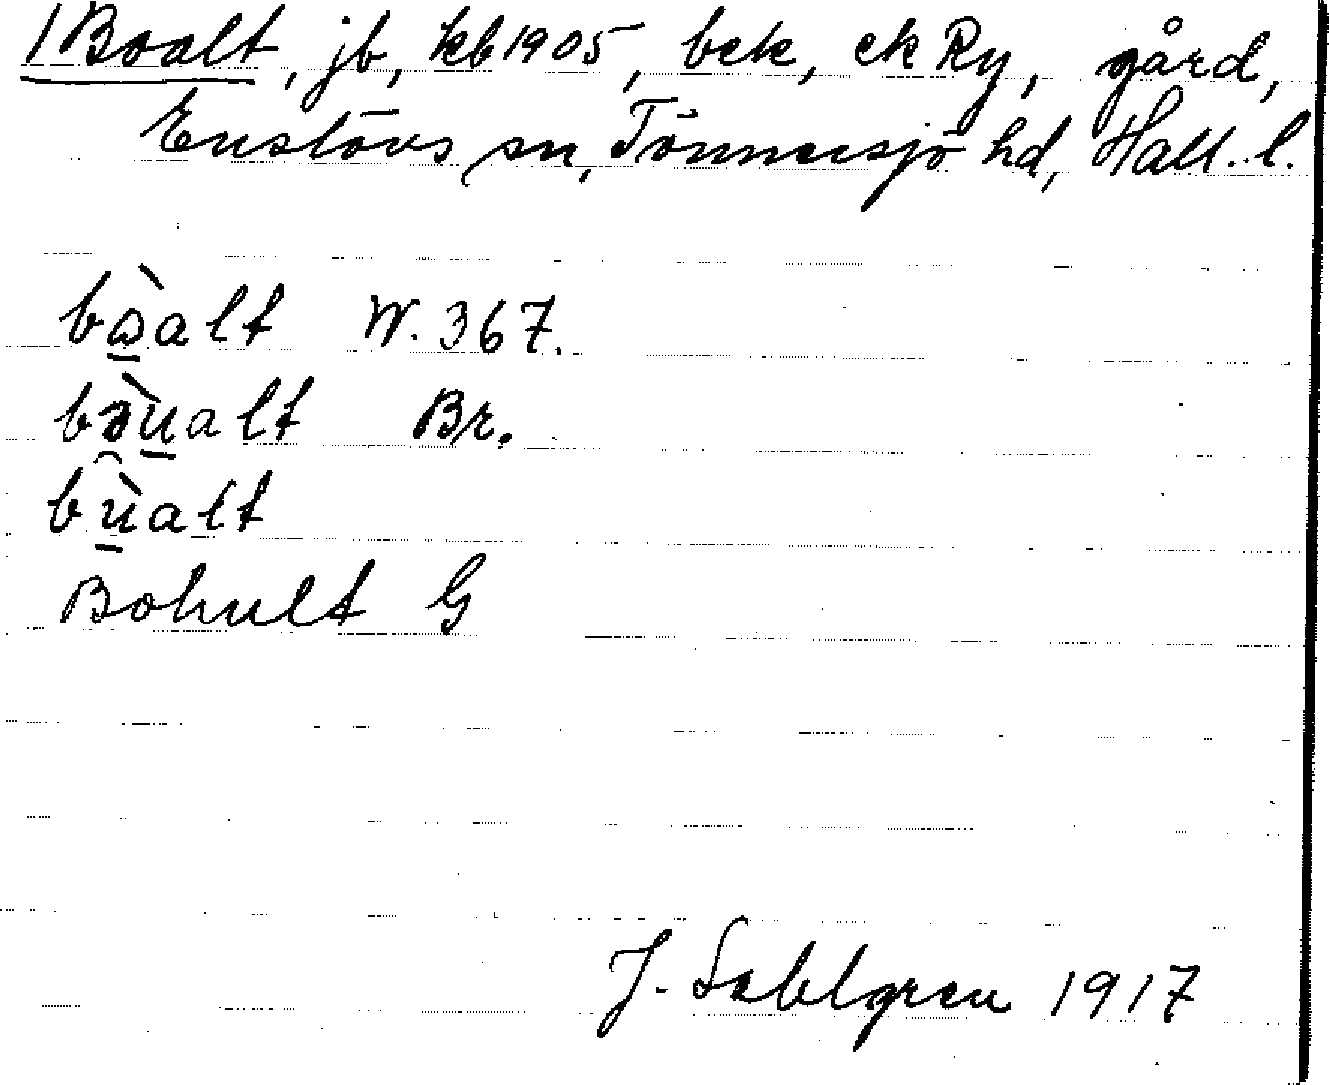 1 Boalt, jb, kb 1905, bek, ek Ry, gård,
Enslövs sn, Tönnersjö hd, Hall. l.
bòalt W. 367.
bòu̲alt Br.
bû̲̀alt
Bohult G
J. Sahlgren 1917